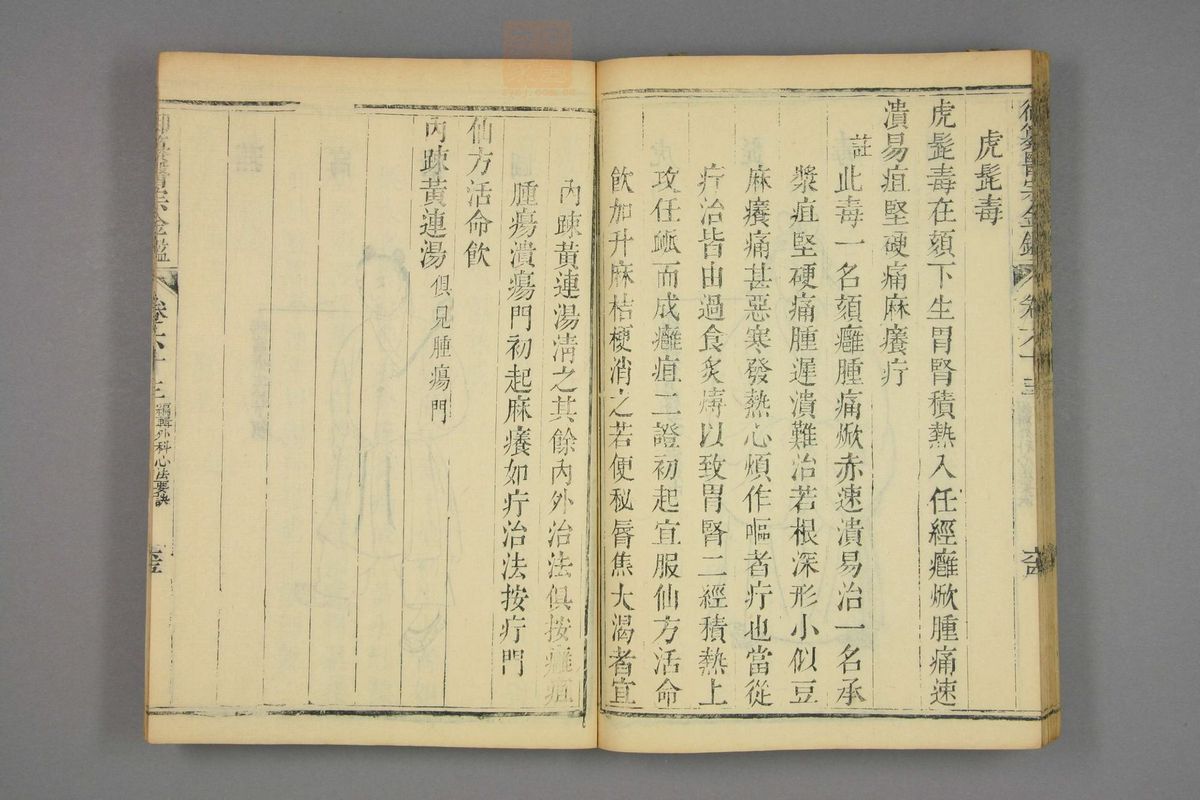 御纂醫宗金鑑 卷六十三
虎髭毒
虎髭毒在頦下生胃腎積熱入任經癰焮腫痛速
潰易疽堅硬痛麻癢疔
註此毒一名頦癰腫痛焮赤速潰易治一名承
漿疽堅硬痛腫遲潰難治若根深形小似豆
麻癢痛甚惡寒發熱心煩作嘔者疔也當從
疔治皆由過食炙煿以致胃腎二經積熱上
攻任㼿而成癰疽二證初起宜服仙方活命
飲加升麻桔梗消之若便秘唇焦大渴者宜
內疎黃連湯清之其餘內外治法俱按癰疽
腫瘍潰瘍門初起麻癢如疔治法按疔門
仙方活命飲
內踈黃連湯俱見腫瘍門
醫宗金鑑 卷六十三 編輯外科心法要訣